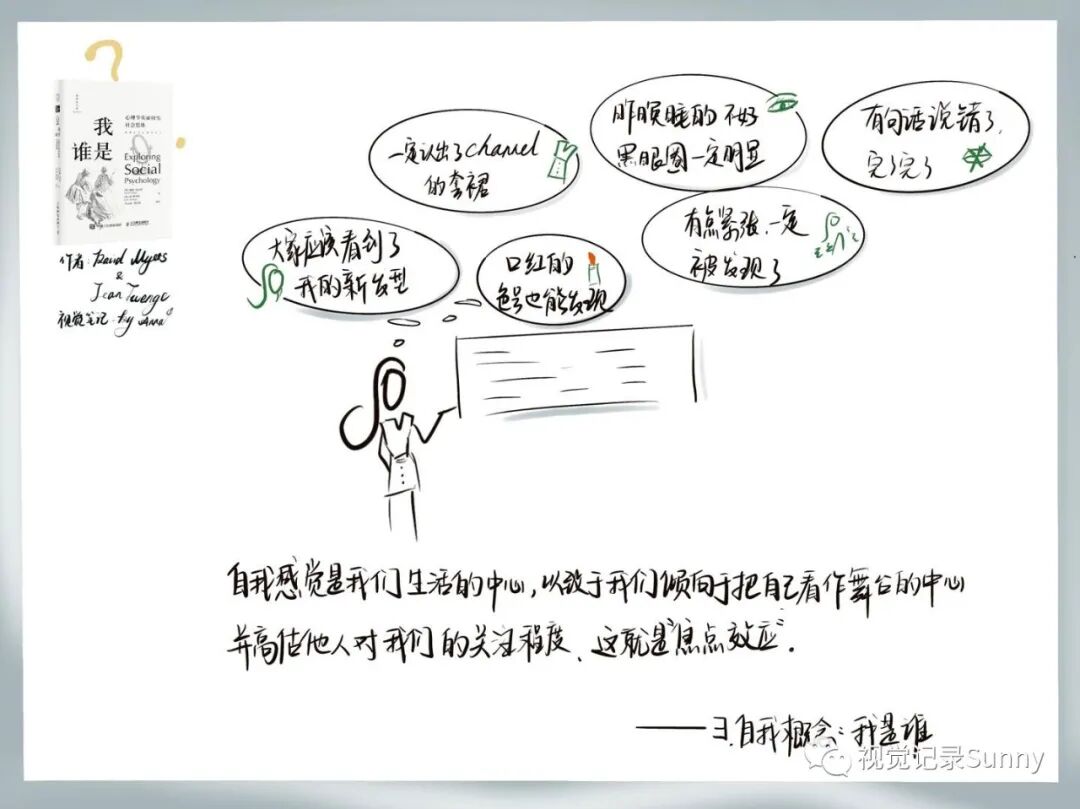 ?
心理学实丽科先
社会思维
我
是
谁
Exploring
Social
Psychology
作者: David Myers
&
Jean Twenge
视觉笔记 by Anna
一定认出了chanel
的套裙
昨晚睡的不好
黑眼圈一定明显
有句话说错了,
完了完了
大家应该看到了
我的新发型
口红的
色号也能发现
有点紧张,一定
被发现了
自我感觉是我们生活的中心,以致于我们倾向于把自己看作舞台的中心
并高估他人对我们的关注程度、这就是“焦点效应”.
——3.自我概念:我是谁
视觉记录Sunny